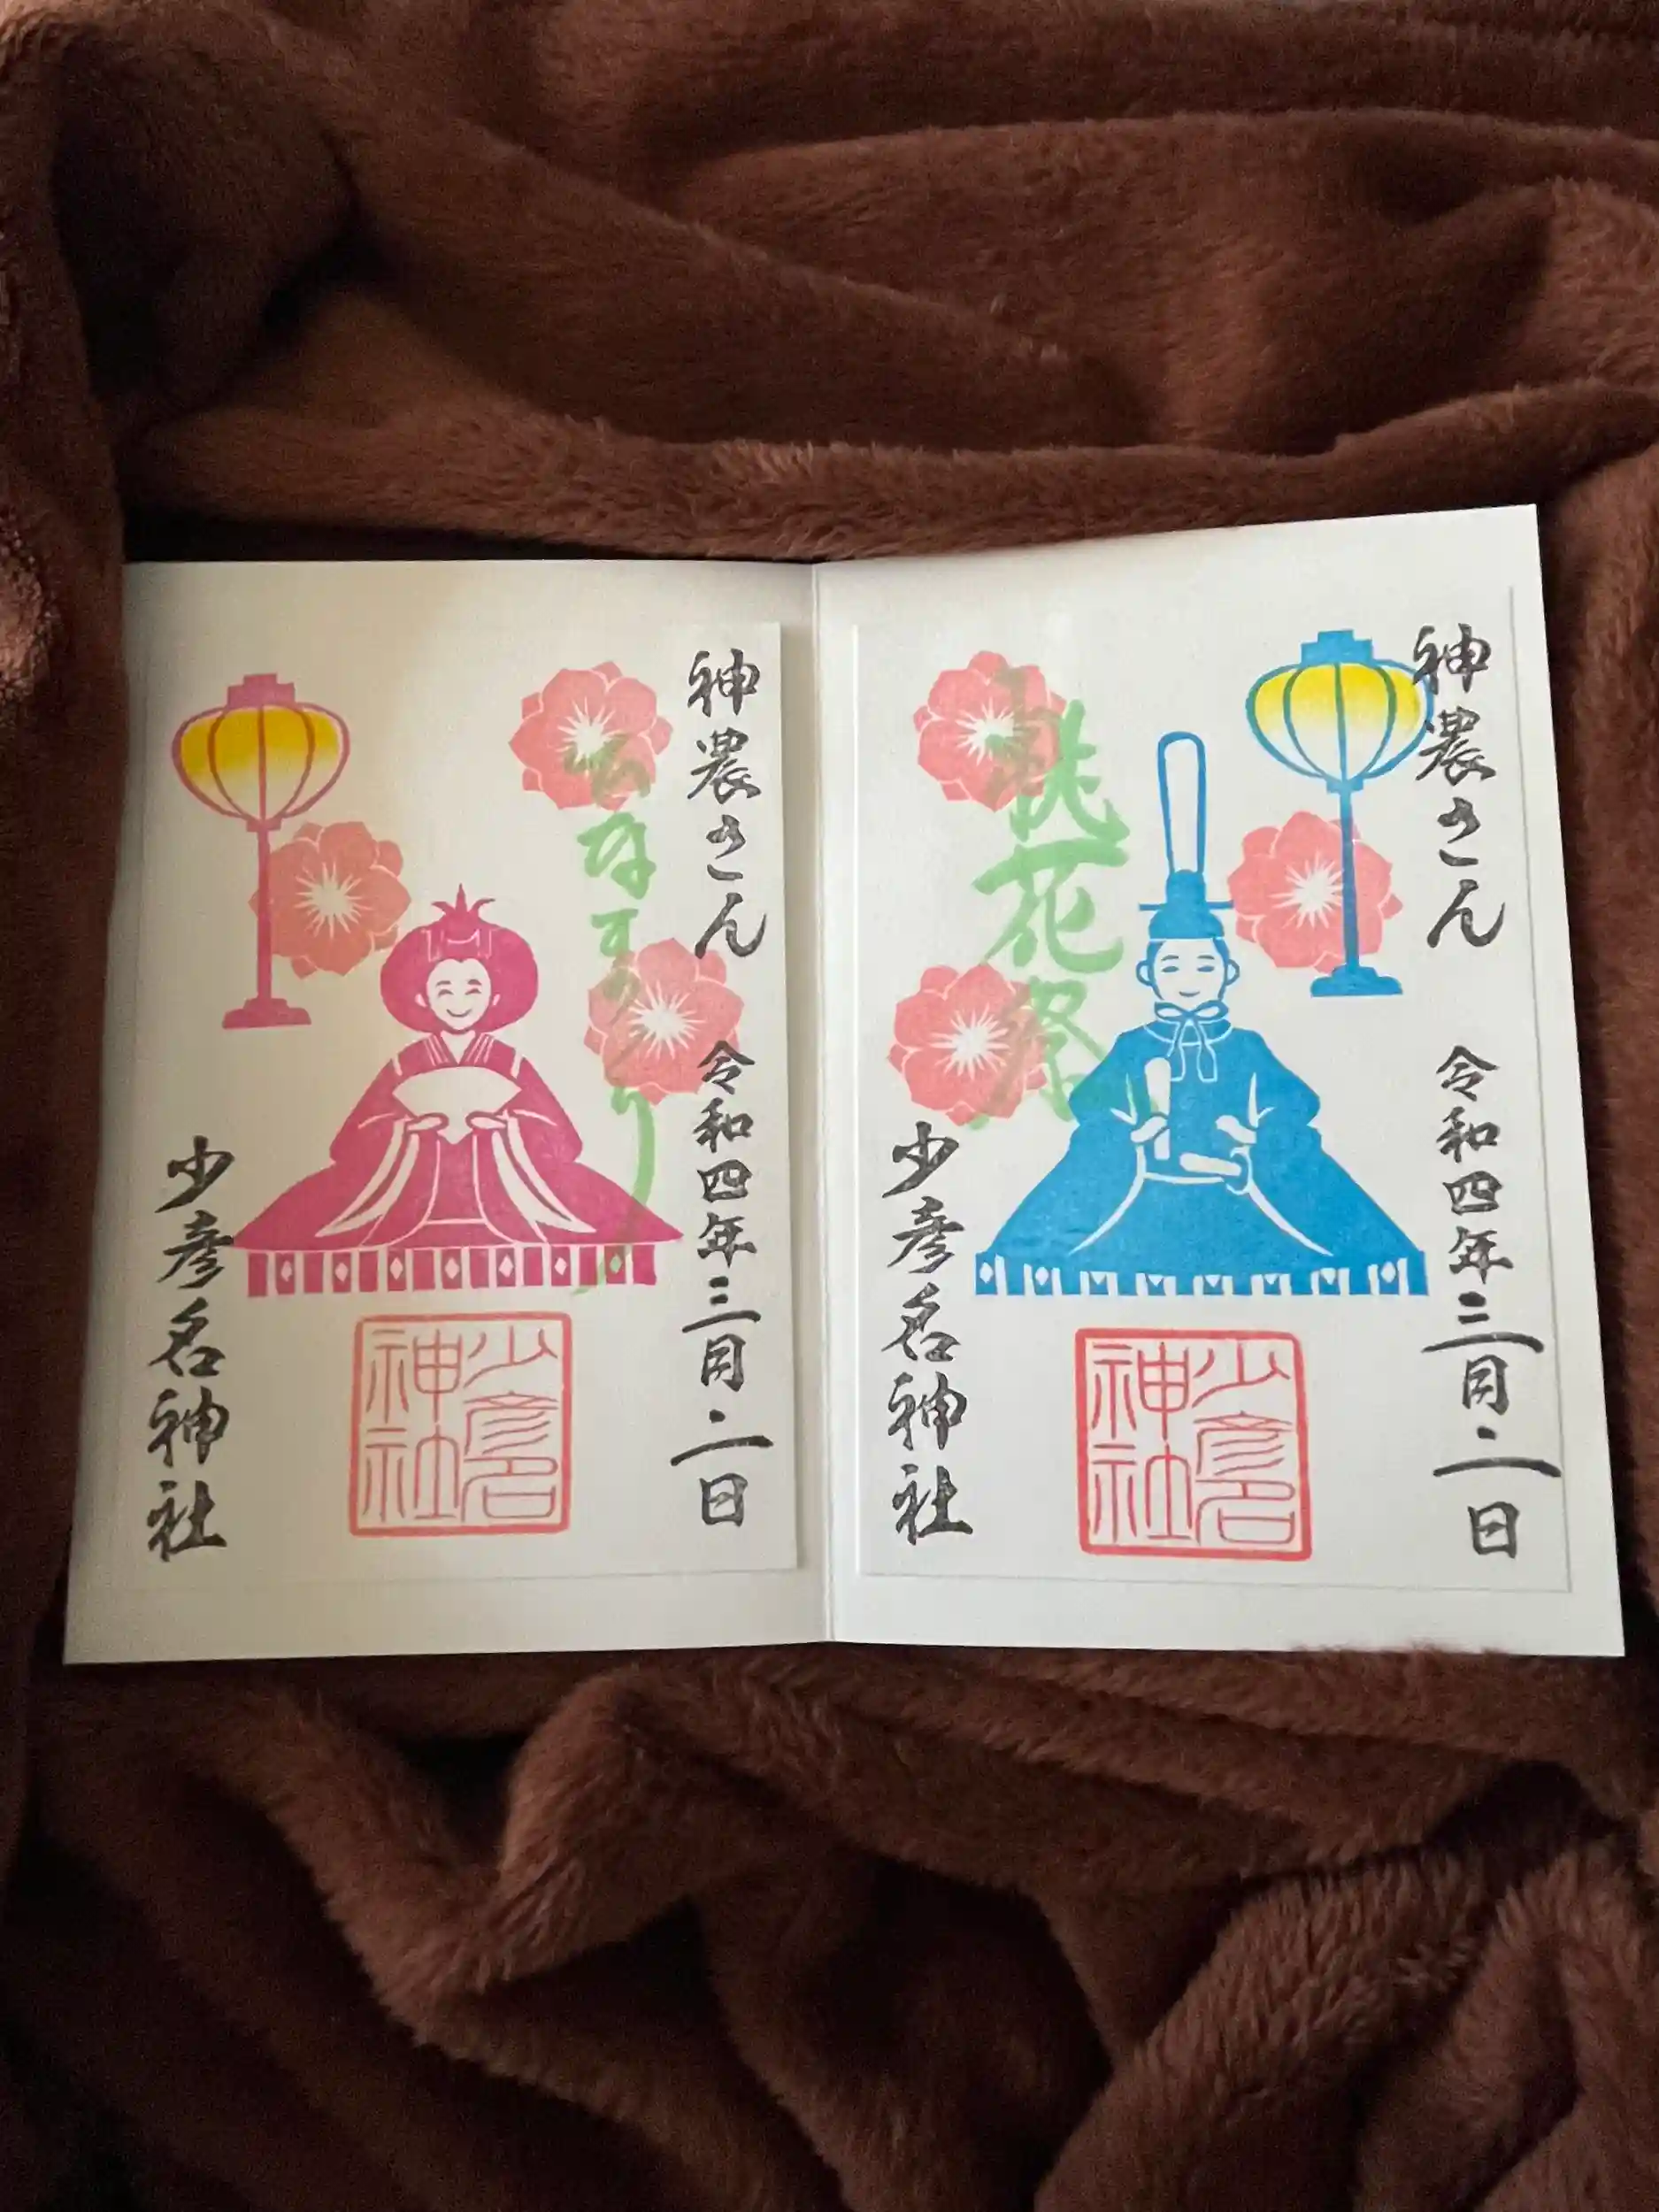 神農さん
令和四年三月二日
桃花祭
少彦名神社
少彦名
神社
神農さん
令和四年三月二日
ひなまつり
少彦名神社
少彦名
神社